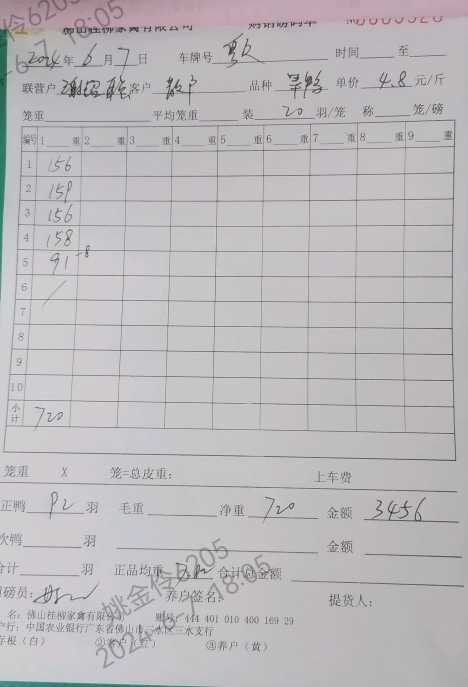 佛山桂柳家禽有限公司 购销磅码单 №
2024年6月7日 车牌号 时间 至
联营户 客户 散户 品种 单价 4.8 元/斤
笼重 平均笼重 装 20 羽/笼 称 笼/磅
编号 1 重 2 重 3 重 4 重 5 重 6 重 7 重 8 重 9 重
1 156
2 159
3 156
4 158
5 91 -8
6 /
7
8
9
10
小计 720
笼重 X 笼=总皮重: 上车费
正鸭 92 羽 毛重 净重 720 金额 3456
次鸭 羽 金额
合计 羽 正品均重 合计总金额
司磅员: 养户签名: 提货人:
名: 佛山桂柳家禽有限公司 账号: 444 401 010 400 169 29
户行: 中国农业银行广东省佛山市三水区三水支行
存根(白) ②客户(红) ③养户(黄)
姚金伶6205
2024-6-7 18:05